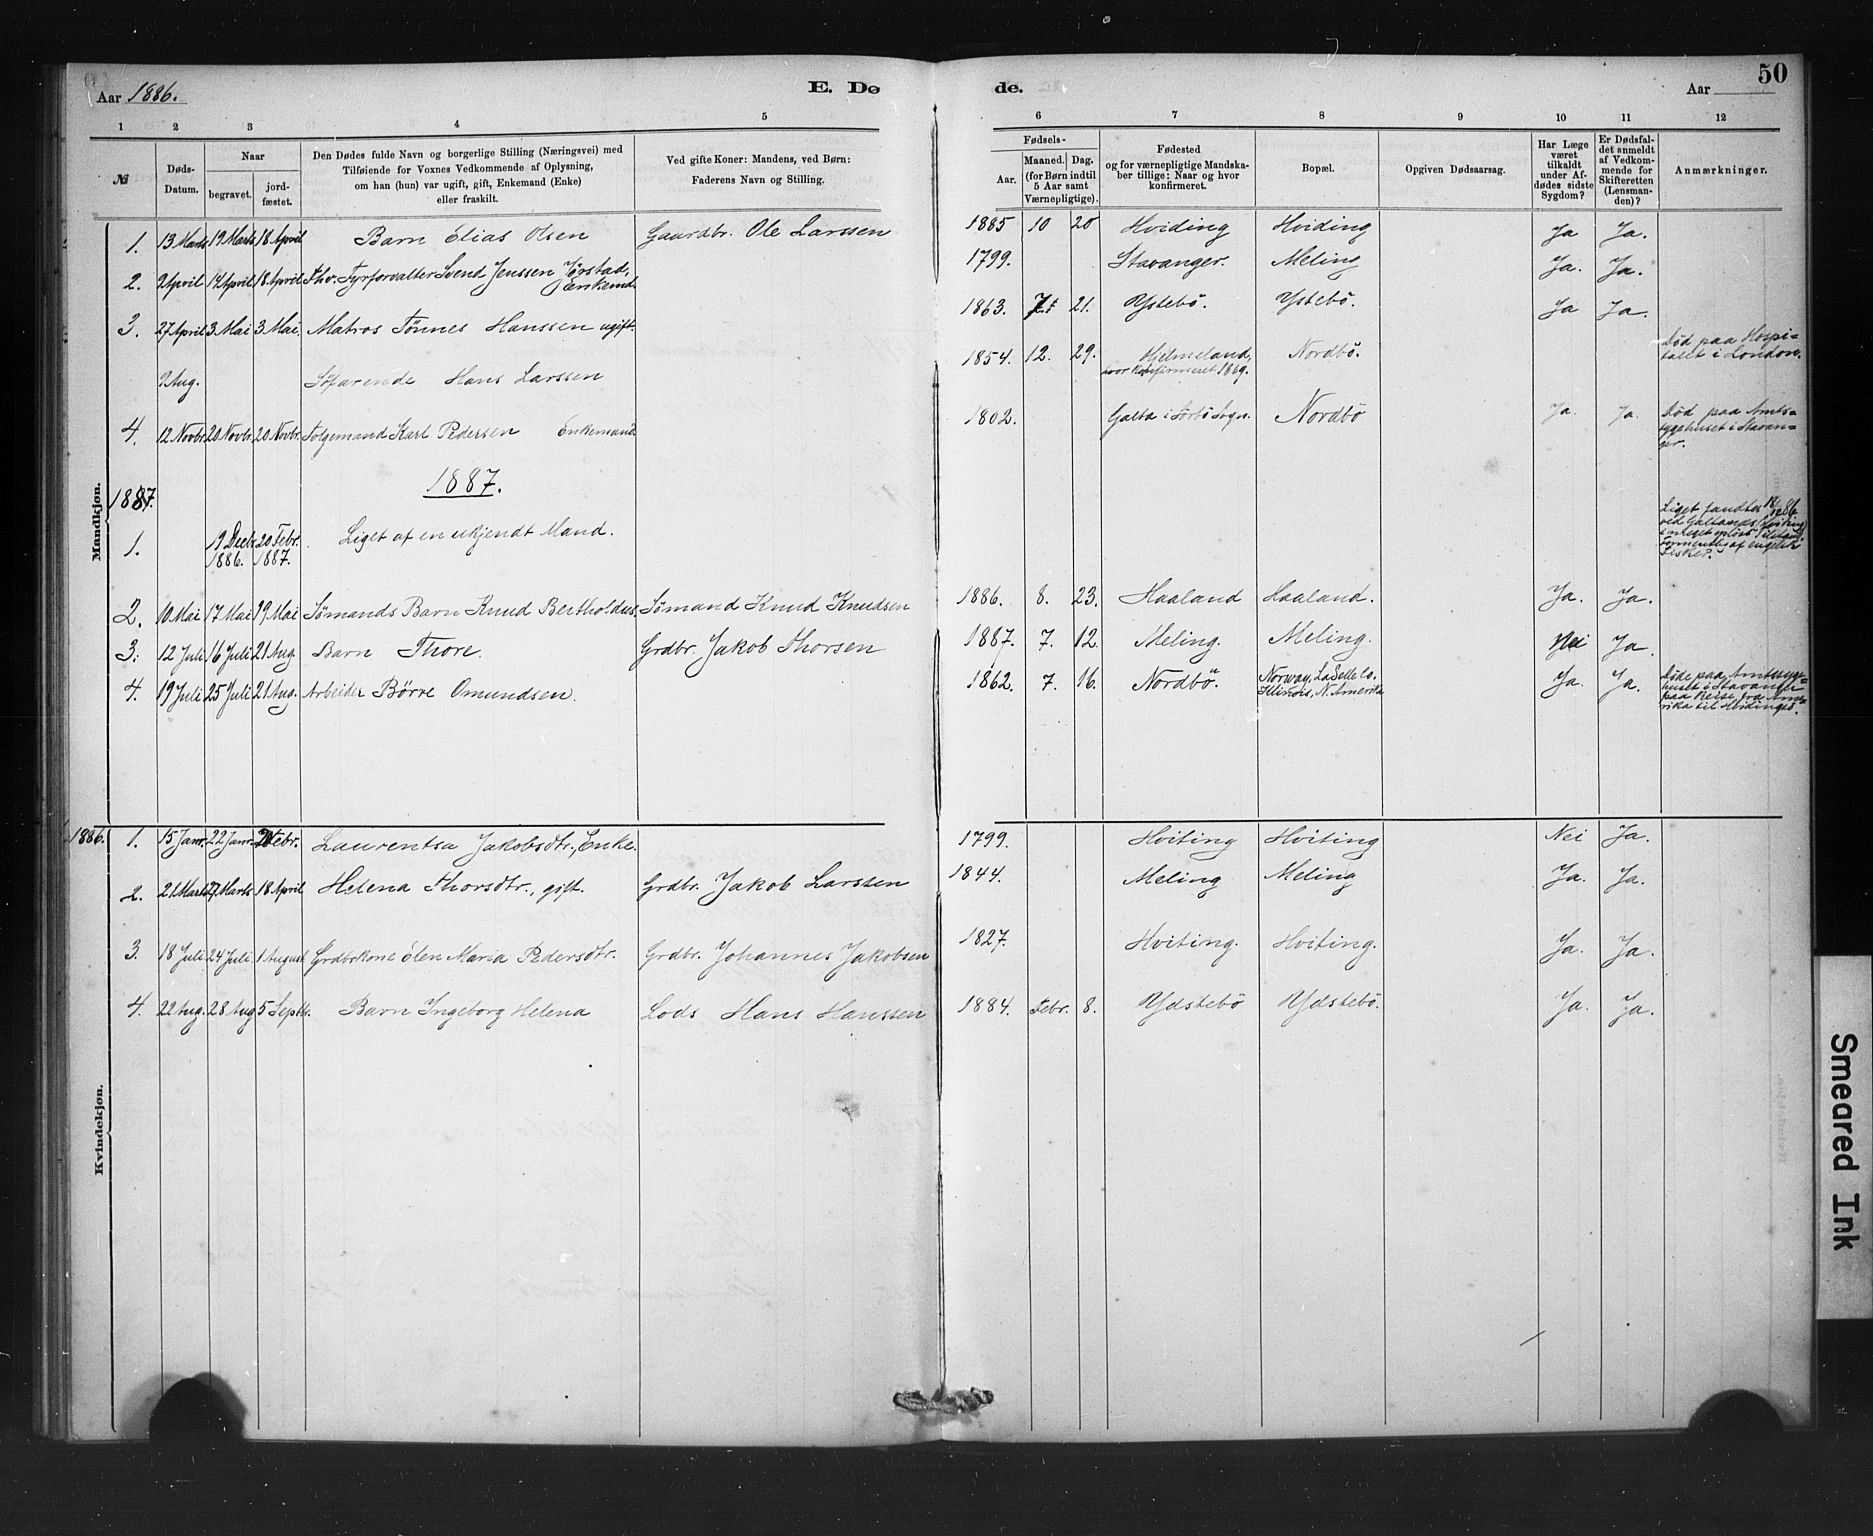 50
Aar 1886.
E. Dø de.
Aar
1 2 3 4 5 6 7 8 9 10 11 12
№
Døds-
Datum.
Naar
begravet.
jord-
fæstet.
Den Dødes fulde Navn og borgerlige Stilling (Næringsvei) med
Tilføiende for Voxnes Vedkommende af Oplysning,
om han (hun) var ugift, gift, Enkemand (Enke)
eller fraskilt.
Ved gifte Koner: Mandens, ved Børn:
Faderens Navn og Stilling.
Fødsels-
Aar.
Maaned. Dag.
(for Børn indtil
5 Aar samt
Værnepligtige).
Fødested
og for værnepligtige Mandska-
ber tillige: Naar og hvor
konfirmeret.
Bopæl.
Opgiven Dødsaarsag.
Har Læge
været
tilkaldt
under Af-
dødes sidste
Sygdom?
Er Dødsfal-
det anmeldt
af Vedkom-
mende for
Skifteretten
(Lensman-
den)?
Anmærkninger.
Mandkjøn.
1. 13 Marts 19 Marts 18 April Barn Elias Olsen Gaardbr. Ole Larssen 1885 10 20 Hviding Hviding Ja Ja.
2. 9 April 14 April 18 April Fhv. Fyrforvalter Svend Jenssen Jørstad, Enkemd. 1799. Stavanger. Meling Ja. Ja.
3. 27 April 3 Mai 3 Mai. Matros Tönnes Hanssen ugift. 1863. 21. Ystebö. Ystebö. Ja Ja.
9 Aug. Söfarende Hans Larssen 1854. 12. 29. Hjelmeland, hvor Konfirmeret 1869. Nordbö. Död paa Hospi-
talet i London.
4. 12 Novbr. 20 Novbr. 20 Novbr. Folgemand Karl Pedersen Enkemand 1802. Galta i Sörbö Sogn. Nordbö Ja. Ja. Död paa Amts-
sygehuset i Stavan-
ger.
1887.
1887.
1. 19 Decbr. 1886. 20 Febr. 1887. Liget af en ukjendt Mand. Liget fandtes
ved Galtands (Hviding)
i meget oplöst Tilstand.
af engelsk
Fisker?
2. 10 Mai 17 Mai 19 Mai Sömands Barn Knud Bertholdus. Sömand Knud Knudsen 1886. 8. 23. Haaland Haaland. Ja. Ja.
3. 12 Juli 16 Juli 21 Aug. Barn Thore. Grdbr. Jakob Thorsen 1887. 7. 12. Meling. Meling. Nei Ja.
4. 19 Juli 25 Juli 21 Aug. Arbeider Börre Omundsen. 1862. 7. 16. Nordbö. Norway, La Selle Co.
Illinois, N. Amerika Ja. Ja. Döde paa Amtssyge-
huset i Stavanger
paa Reise fra Ame-
rika til Hvidingsö.
Kvindekjøn.
1886. 1. 15 Janr. 22 Janr. Febr. Laurentsa Jakobsdtr., Enke. 1799. Hviting Hviting Nei Ja.
2. 21 Marts 27 Marts 18 April Helena Thorsdtr., gift. Grdbr. Jakob Larssen 1844. Meling Meling Ja. Ja.
3. 18 Juli 24 Juli 1 August Grdbrkone Ölen Maria Pedersdtr. Grdbr. Johannes Jakobsen 1827. Hviting. Hviting. Ja. Ja.
4. 22 Aug. 28 Aug 5 Septbr. Barn Ingeborg Helena Lods Hans Hanssen 1884. Febr. 8. Ydstebö Ydstebö. Ja. Ja.
Smeared Ink